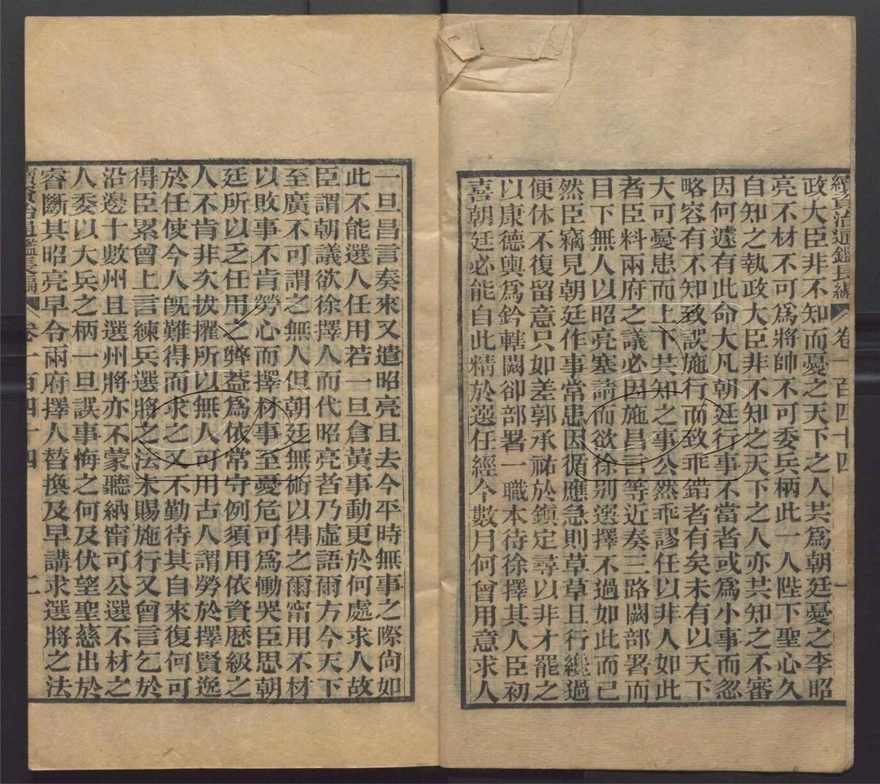 續資治通鑑長編 卷一百四十四 一
政大臣非不知而憂之天下之人共爲朝廷憂之李昭
亮不材不可爲將帥不可委兵柄此一人陛下聖心久
自知之執政大臣非不知之天下之人亦共知之不審
因何遽有此命大凡朝廷行事不當者或爲小事而忽
略容有不知致誤施行而致乖錯者有矣未有以天下
大可憂患而上下共知之事公然乖謬任以非人如此
者臣料兩府之議必因施昌言等近奏三路闕部署而
目下無人以昭亮塞請而欲徐别選擇不過如此而已
然臣竊見朝廷作事常患因循應急則草草且行纔過
便休不復留意只如差郭承祐於鎮定尋以非才罷之
以康德輿爲鈐轄闕卻部署一職本待徐擇其人臣初
喜朝廷必能自此精於選任經今數月何曾用意求人
一旦昌言奏來又遣昭亮且去今平時無事之際尙如
此不能選人任用若一旦倉黃事動更於何處求人故
臣謂朝議欲徐擇人而代昭亮者乃虛語爾方今天下
至廣不可謂之無人但朝廷無術以得之爾甯用不材
以敗事不肯勞心而擇材事至憂危可爲慟哭臣思朝
廷所以乏任用之弊蓋爲依常守例須用依資歴級之
人不肯非次拔擢所以無人可用古人謂勞於擇賢逸
於任使今人旣難得而求之又不勤待其自來復何可
得臣累曾上言練兵選將之法未賜施行又曾言乞於
沿邊十數州且選州將亦不蒙聽納甯可公選不材之
人委以大兵之柄一旦誤事悔之何及伏望聖慈出於
睿斷其昭亮早令兩府擇人替換及早講求選將之法
續資治通鑑長編 卷一百四十四 二